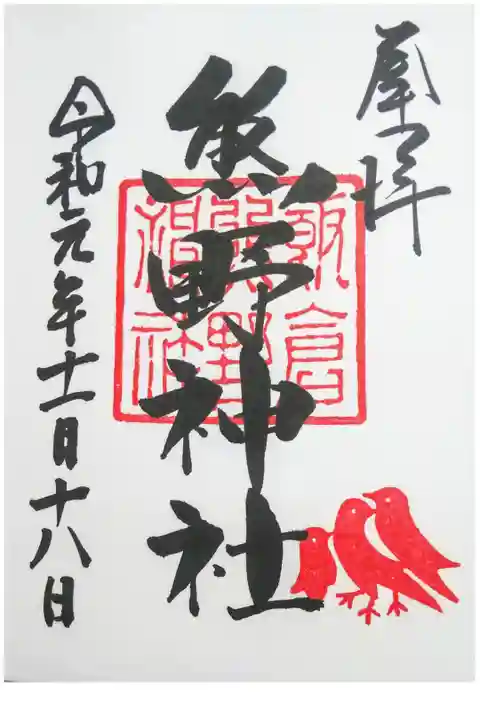 奉拝
熊野神社
飯倉
熊野
神社
令和元年十一月十八日